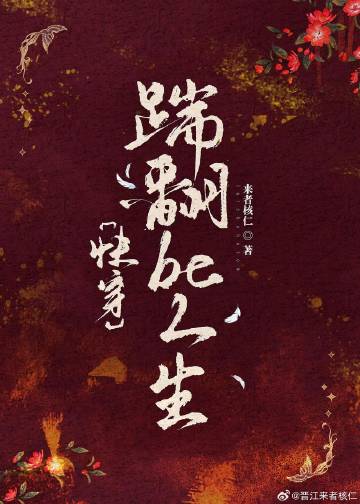 踹翻be人生
「快穿」
来者核仁◎著
@晋江来者核仁